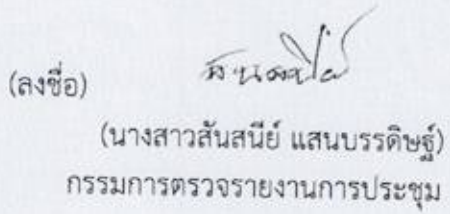 (ลงชื่อ) สันสนีย์
(นางสาวสันสนีย์ แสนบรรดิษฐ์)
กรรมการตรวจรายงานการประชุม